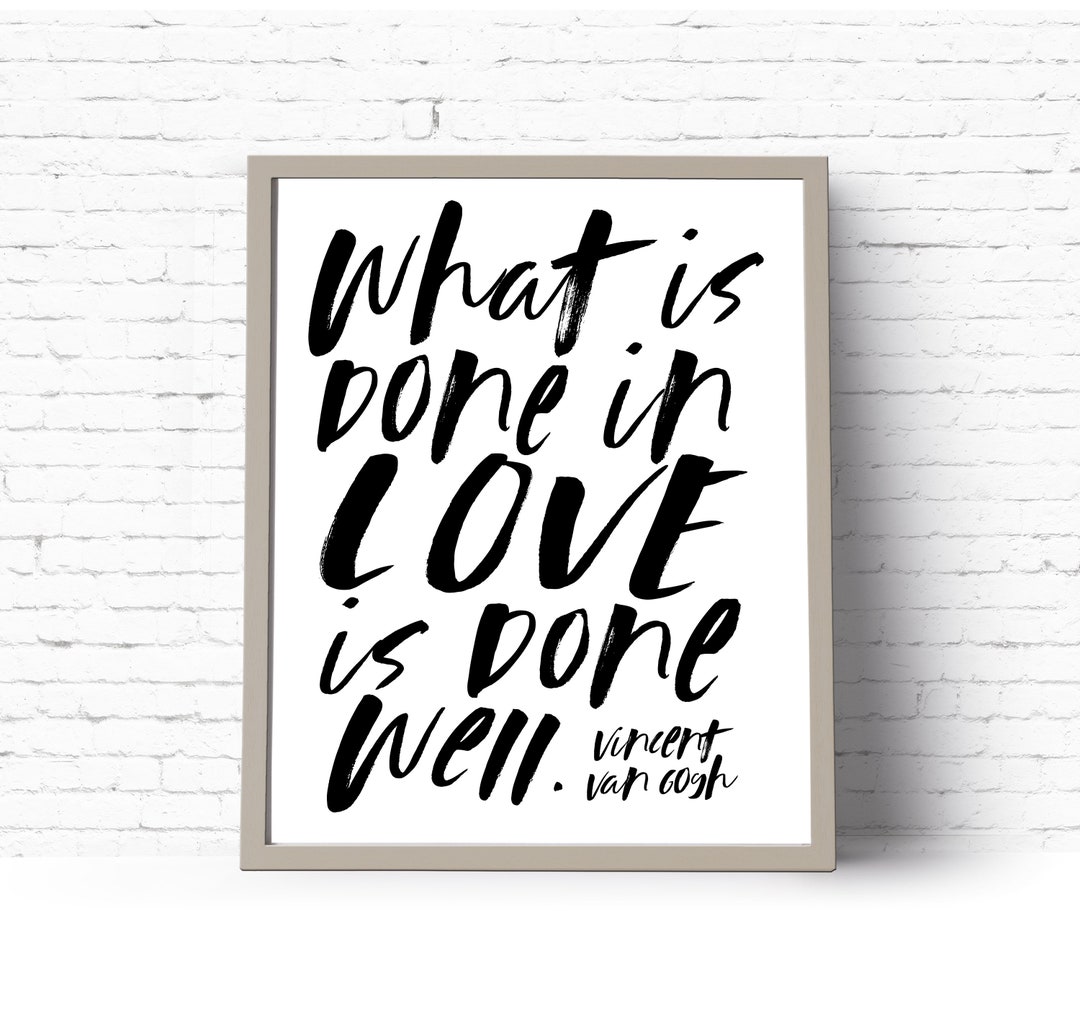 What is
Done in
LOVE
is Done
Well.
Vincent
Van Gogh